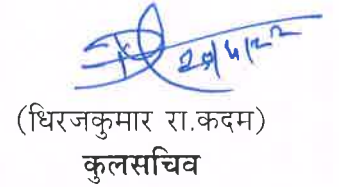 (धिरजकुमार रा.कदम)
कुलसचिव